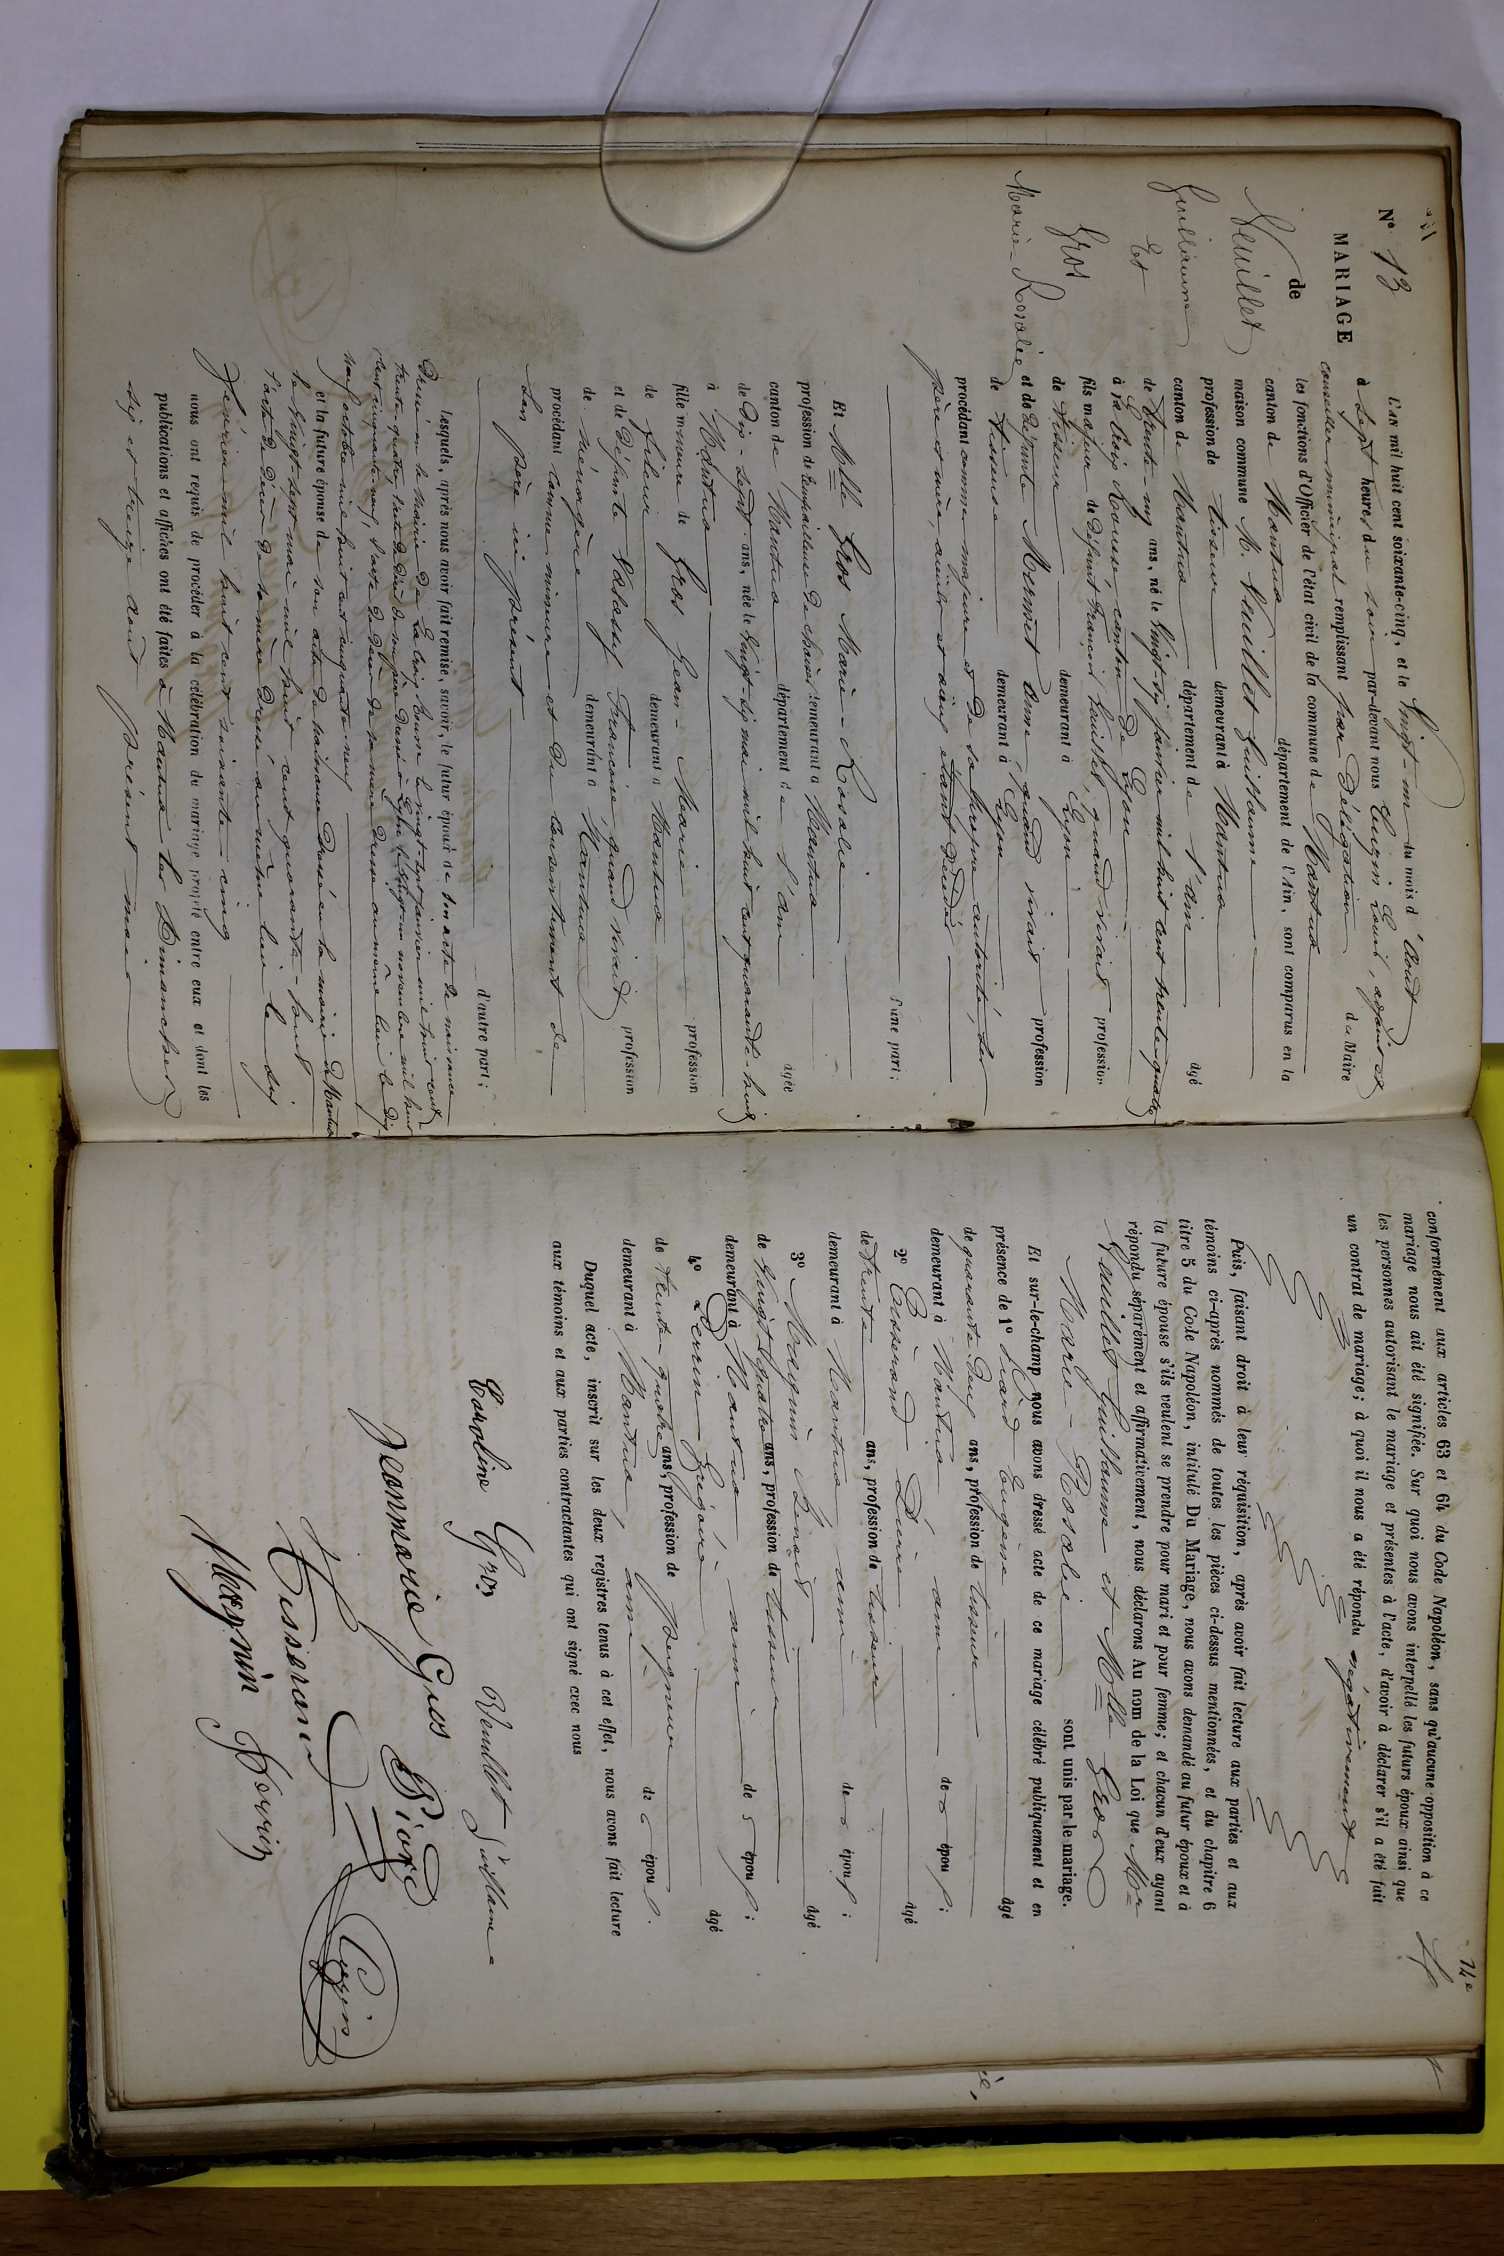 N° 13
MARIAGE
de
Vuillet
Guillaume
Et
Gros
Marie-Rosalie
L'AN mil huit cent soixante-cinq, et le Vingt-un du mois d'Août
à sept heures du soir par-devant nous Cuzin Louis, adjoint et
conseiller municipal remplissant par Délégation du Maire
les fonctions d'Officier de l'état civil de la commune de Nantua
canton de Nantua département de l'Ain, sont comparus en la
maison commune M. Vuillet Guillaume
profession de tisseur demeurant à Nantua
canton de Nantua département de l'ain agé
de trente-un ans, né le Vingt-six janvier mil huit cent trente-quatre
à la Croix Rousse canton de Lyon
fils majeur de défunt François Vuillet, quand vivait profession
de tisseur demeurant à Lyon
et de défunte Mermet Anne, quand vivait profession
de tisseuse demeurant à Lyon
procédant comme majeur et de sa propre autorité, ses
père et mère, aïeuls et aïeux étant décédés
d'une part;
Et Mlle Gros Marie-Rosalie
profession de rempailleuse de chaises demeurant à Nantua
canton de Nantua département de l'ain agée
de dix-sept ans, née le Vingt-six mai mil huit cent quarante-huit
à Nantua
fille mineure de Gros Jean-Marie profession
de fileur demeurant à Nantua
et de défunte Françoise, quand vivait profession
de ménagère demeurant à Nantua
procédant comme mineure et du consentement de
son père ici présent
d'autre part;
lesquels, après nous avoir fait remise, savoir, le futur époux de son acte de naissance
Dressé en la Mairie de la Croix Rousse le vingt-sept janvier mil huit cent
trente-quatre, l'acte de décès de son père dressé à Lyon le vingt un novembre mil huit
cent cinquante-neuf, l'acte de décès de sa mère dressé au même lieu le dix-
neuf octobre mil huit cent cinquante-neuf
et la future épouse de son acte de naissance dressé en la mairie de Nantua
le Vingt-sept mai mil huit cent quarante-huit
l'acte de décès de sa mère dressé au même lieu le six
février mil huit cent soixante-cinq
nous ont requis de procéder à la célébration du mariage projeté entre eux et dont les
publications et affiches ont été faites à Nantua les Dimanches
six et treize août présent mois
14e
conformément aux articles 63 et 64 du Code Napoléon, sans qu'aucune opposition à ce
mariage nous ait été signifiée. Sur quoi nous avons interpellé les futurs époux ainsi que
les personnes autorisant le mariage et présentes à l'acte, d'avoir à déclarer s'il a été fait
un contrat de mariage; à quoi il nous a été répondu négativement
Puis, faisant droit à leur réquisition, après avoir fait lecture aux parties et aux
témoins ci-après nommés de toutes les pièces ci-dessus mentionnées, et du chapitre 6
titre 5 du Code Napoléon, intitulé Du Mariage, nous avons demandé au futur époux et à
la future épouse s'ils veulent se prendre pour mari et pour femme; et chacun d'eux ayant
répondu séparément et affirmativement, nous déclarons Au nom de la Loi que Mr
Vuillet Guillaume et Mlle Gros
Marie-Rosalie sont unis par le mariage.
Et sur-le-champ nous avons dressé acte de ce mariage célébré publiquement et en
présence de 1° Piard Eugène agé
de quarante-cinq ans, profession de tisseur
demeurant à Nantua, ami des époux;
2° Tisserand Pierre agé
de trente ans, profession de tisseur
demeurant à Nantua ami des époux;
3° Magnin Benoit agé
de Vingt-quatre ans, profession de tisseur
demeurant à Nantua ami des époux;
4° Perrin Grégoire agé
de trente-quatre ans, profession de peigneur
demeurant à Nantua, ami des époux.
Duquel acte, inscrit sur les deux registres tenus à cet effet, nous avons fait lecture
aux témoins et aux parties contractantes qui ont signé avec nous
Caroline Gros Vuillet Guillaume
Jeanmarie Gros Piard
Tisserand Cuzin
Magnin Perrin